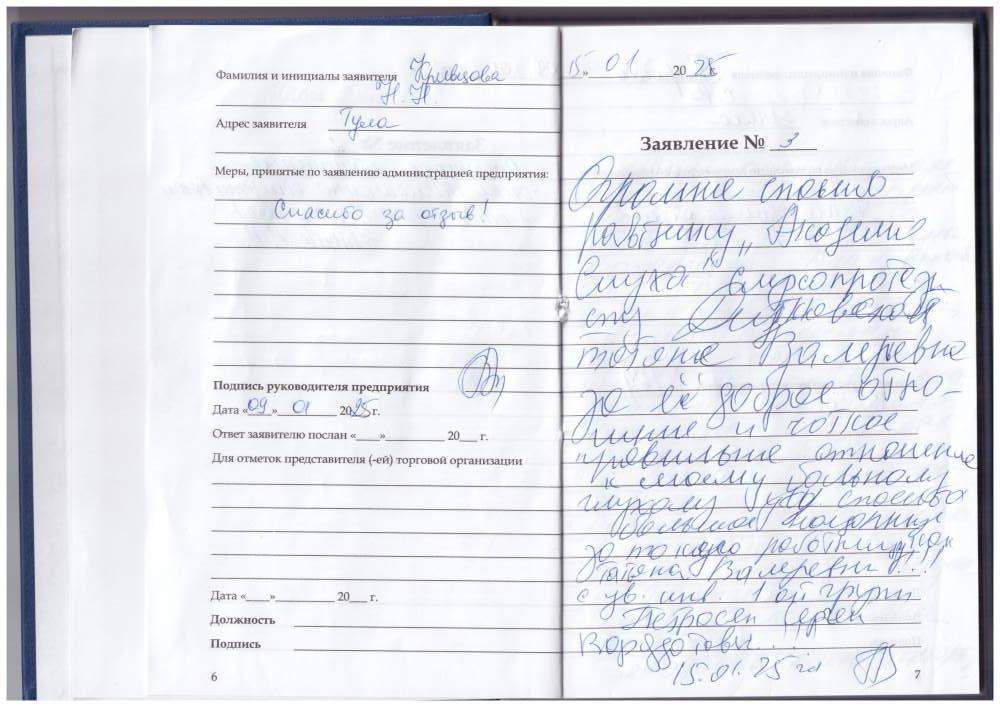 Фамилия и инициалы заявителя Кравцова
Н.Н.
Адрес заявителя Тула
Меры, принятые по заявлению администрацией предприятия:
Спасибо за отзыв!
Подпись руководителя предприятия
Дата «09» 01 2025 г.
Ответ заявителю послан «___»__________ 20___ г.
Для отметок представителя (-ей) торговой организации
Дата «___»__________ 20___ г.
Должность
Подпись
6
15» 01 2025 г.
Заявление № 3
Огромне спосибо
"Академие
Слуха" слухопротез
сту
татяне Валерьевне
за её доброе отно-
шение и чоткое
правильне отношение
к моему больному
глухому уху спосиба
большое
за такую
Татяна Валеревну!!!
с ув. инв. 1 ой групи
Петросен Сергей
15.01.25 го
7